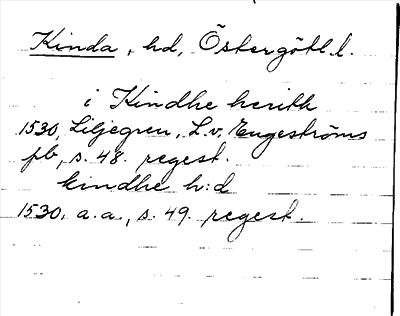 Kinda, hd, Östergötl. l.
i Kindhe herith
1530, Liljegren, L. v. Engeströms
pb, s. 48. regest.
kindhe h:d
1530. a. a., s. 49. regest.